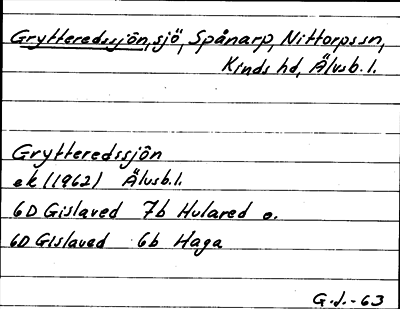 Grytteredssjön, sjö, Spånarp, Nittorpssn,
Kinds hd, Älvsb. l.
Grytteredssjön
ek (1962) Älvsb. l.
6D Gislaved 7b Hulared o.
6D Gislaved 6b Haga
G. J. - 63